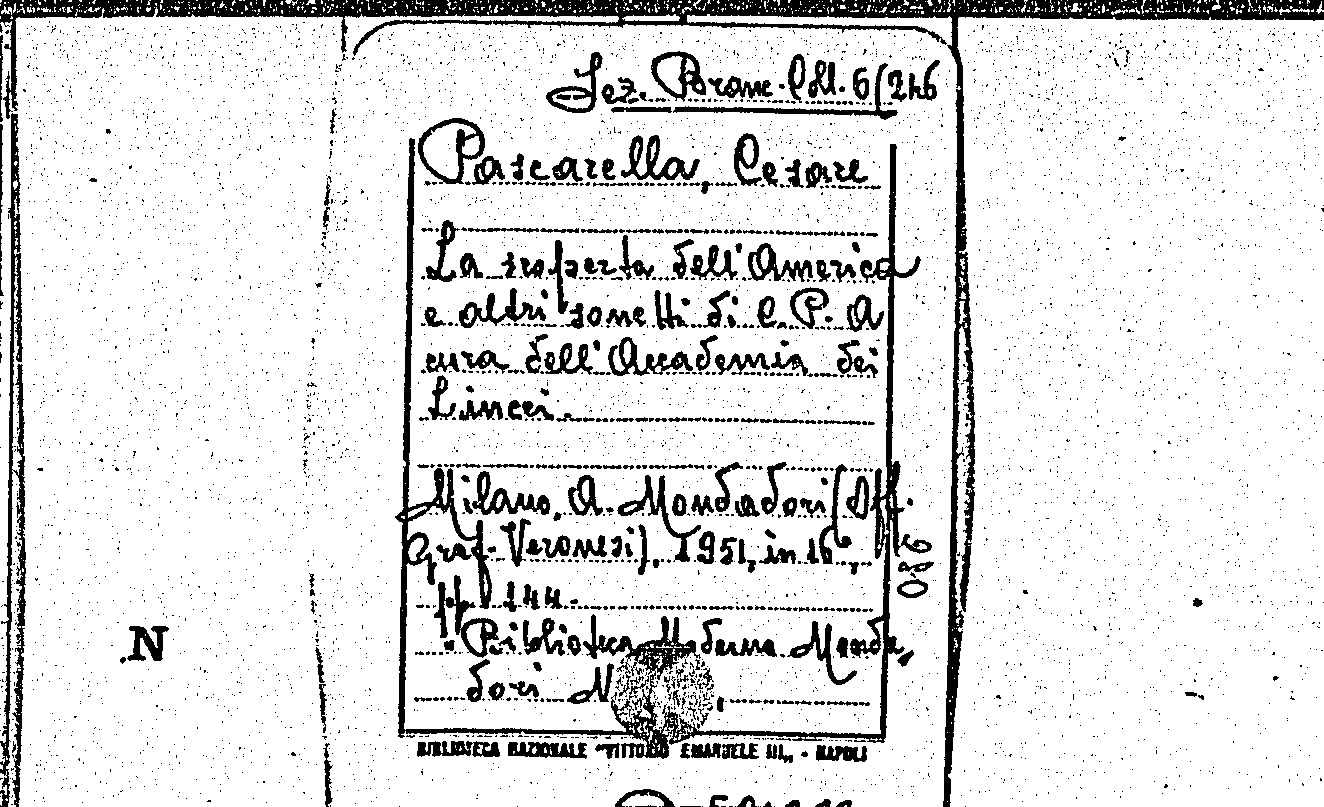 Sez. Branc. Coll. 6/246
Pascarella, Cesare
La scoperta dell'America
e altri sonetti di C. P. A
cura dell'Accademia dei
Lincei.
Milano, A. Mondadori (Off.
Graf. Veronesi), 1951, in 16°,
pp. 144.
"Biblioteca Moderna Monda,
dori N
086
N
BIBLIOTECA NAZIONALE "VITTORIO EMANUELE III„ - NAPOLI